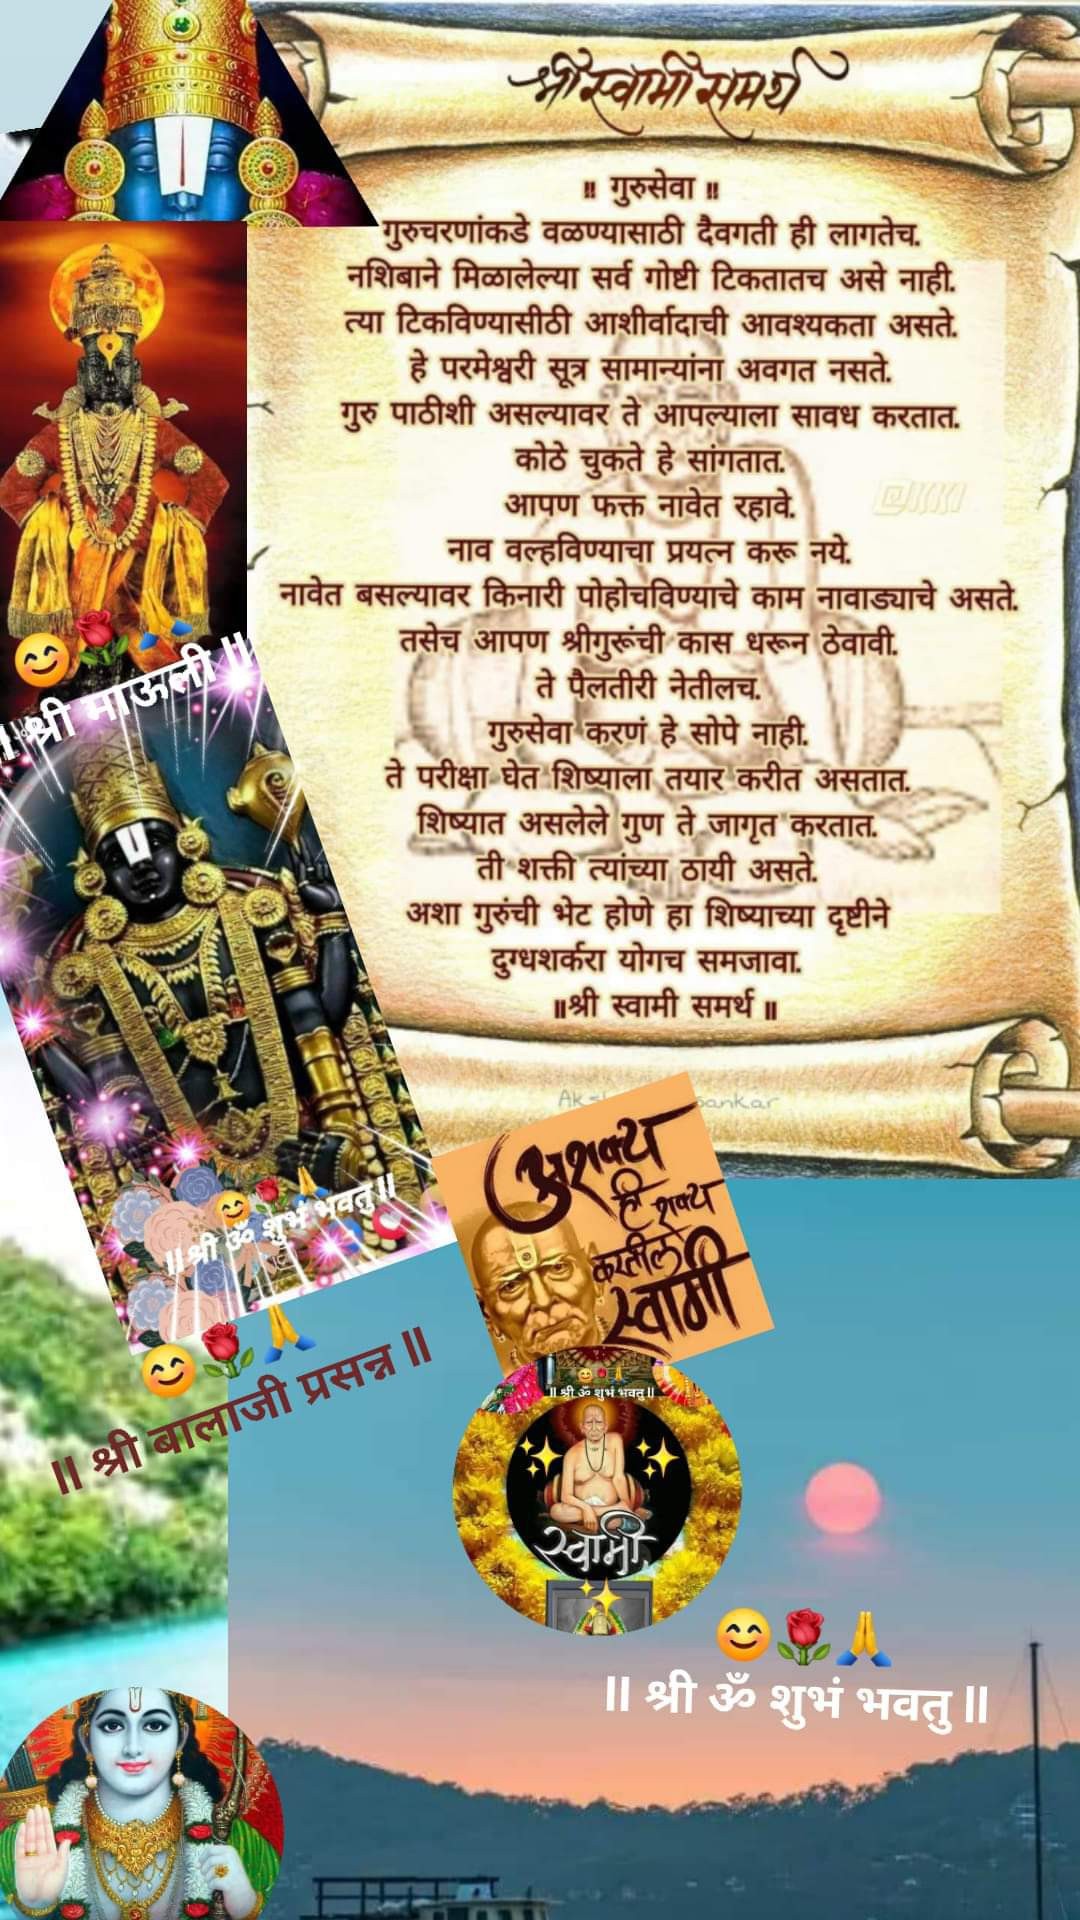 श्री स्वामी समर्थ
॥ गुरुसेवा ॥
गुरुचरणांकडे वळण्यासाठी दैवगती ही लागतेच.
नशिबाने मिळालेल्या सर्व गोष्टी टिकतातच असे नाही.
त्या टिकविण्यासीठी आशीर्वादाची आवश्यकता असते.
हे परमेश्वरी सूत्र सामान्यांना अवगत नसते.
गुरु पाठीशी असल्यावर ते आपल्याला सावध करतात.
कोठे चुकते हे सांगतात.
आपण फक्त नावेत रहावे.
नाव वल्हविण्याचा प्रयत्न करू नये.
नावेत बसल्यावर किनारी पोहोचविण्याचे काम नावाड्याचे असते.
तसेच आपण श्रीगुरूंची कास धरून ठेवावी.
ते पैलतीरी नेतीलच.
गुरुसेवा करणं हे सोपे नाही.
ते परीक्षा घेत शिष्याला तयार करीत असतात.
शिष्यात असलेले गुण ते जागृत करतात.
ती शक्ती त्यांच्या ठायी असते.
अशा गुरुंची भेट होणे हा शिष्याच्या दृष्टीने
दुग्धशर्करा योगच समजावा.
॥श्री स्वामी समर्थ ॥
😊🌹🙏
॥ श्री माऊली ॥
😊🌹🙏
॥ श्री ॐ शुभं भवतु ॥
😊🌹🙏
॥ श्री बालाजी प्रसन्न ॥
अशक्य
ही शक्य
करतील
स्वामी
😊🌹🙏
॥ श्री ॐ शुभं भवतु ॥
स्वामी
😊🌹🙏
॥ श्री ॐ शुभं भवतु ॥